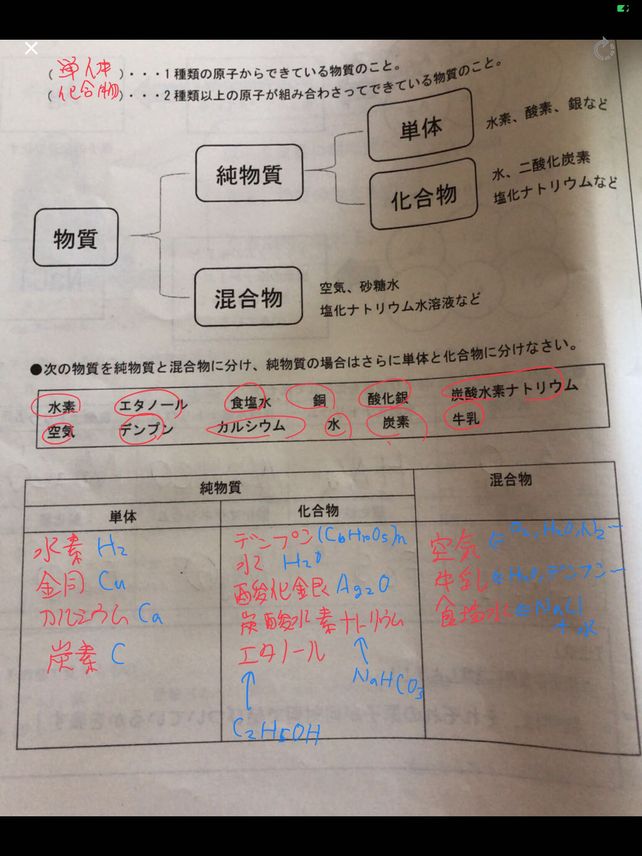 (単体)・・・1種類の原子からできている物質のこと。
(化合物)・・・2種類以上の原子が組み合わさってできている物質のこと。
単体
水素、酸素、銀など
純物質
化合物
水、二酸化炭素
塩化ナトリウムなど
物質
混合物
空気、砂糖水
塩化ナトリウム水溶液など
●次の物質を純物質と混合物に分け、純物質の場合はさらに単体と化合物に分けなさい。
水素 エタノール 食塩水 銅 酸化銀 炭酸水素ナトリウム
空気 デンプン カルシウム 水 炭素 牛乳
純物質 混合物
単体 化合物
水素 H2
銅 Cu
カルシウム Ca
炭素 C
デンプン (C6H10O5)n
水 H2O
酸化銀 Ag2O
炭酸水素ナトリウム
エタノール ↑
NaHCO3
↑
C2H5OH
空気
牛乳
食塩水 NaCl
+水